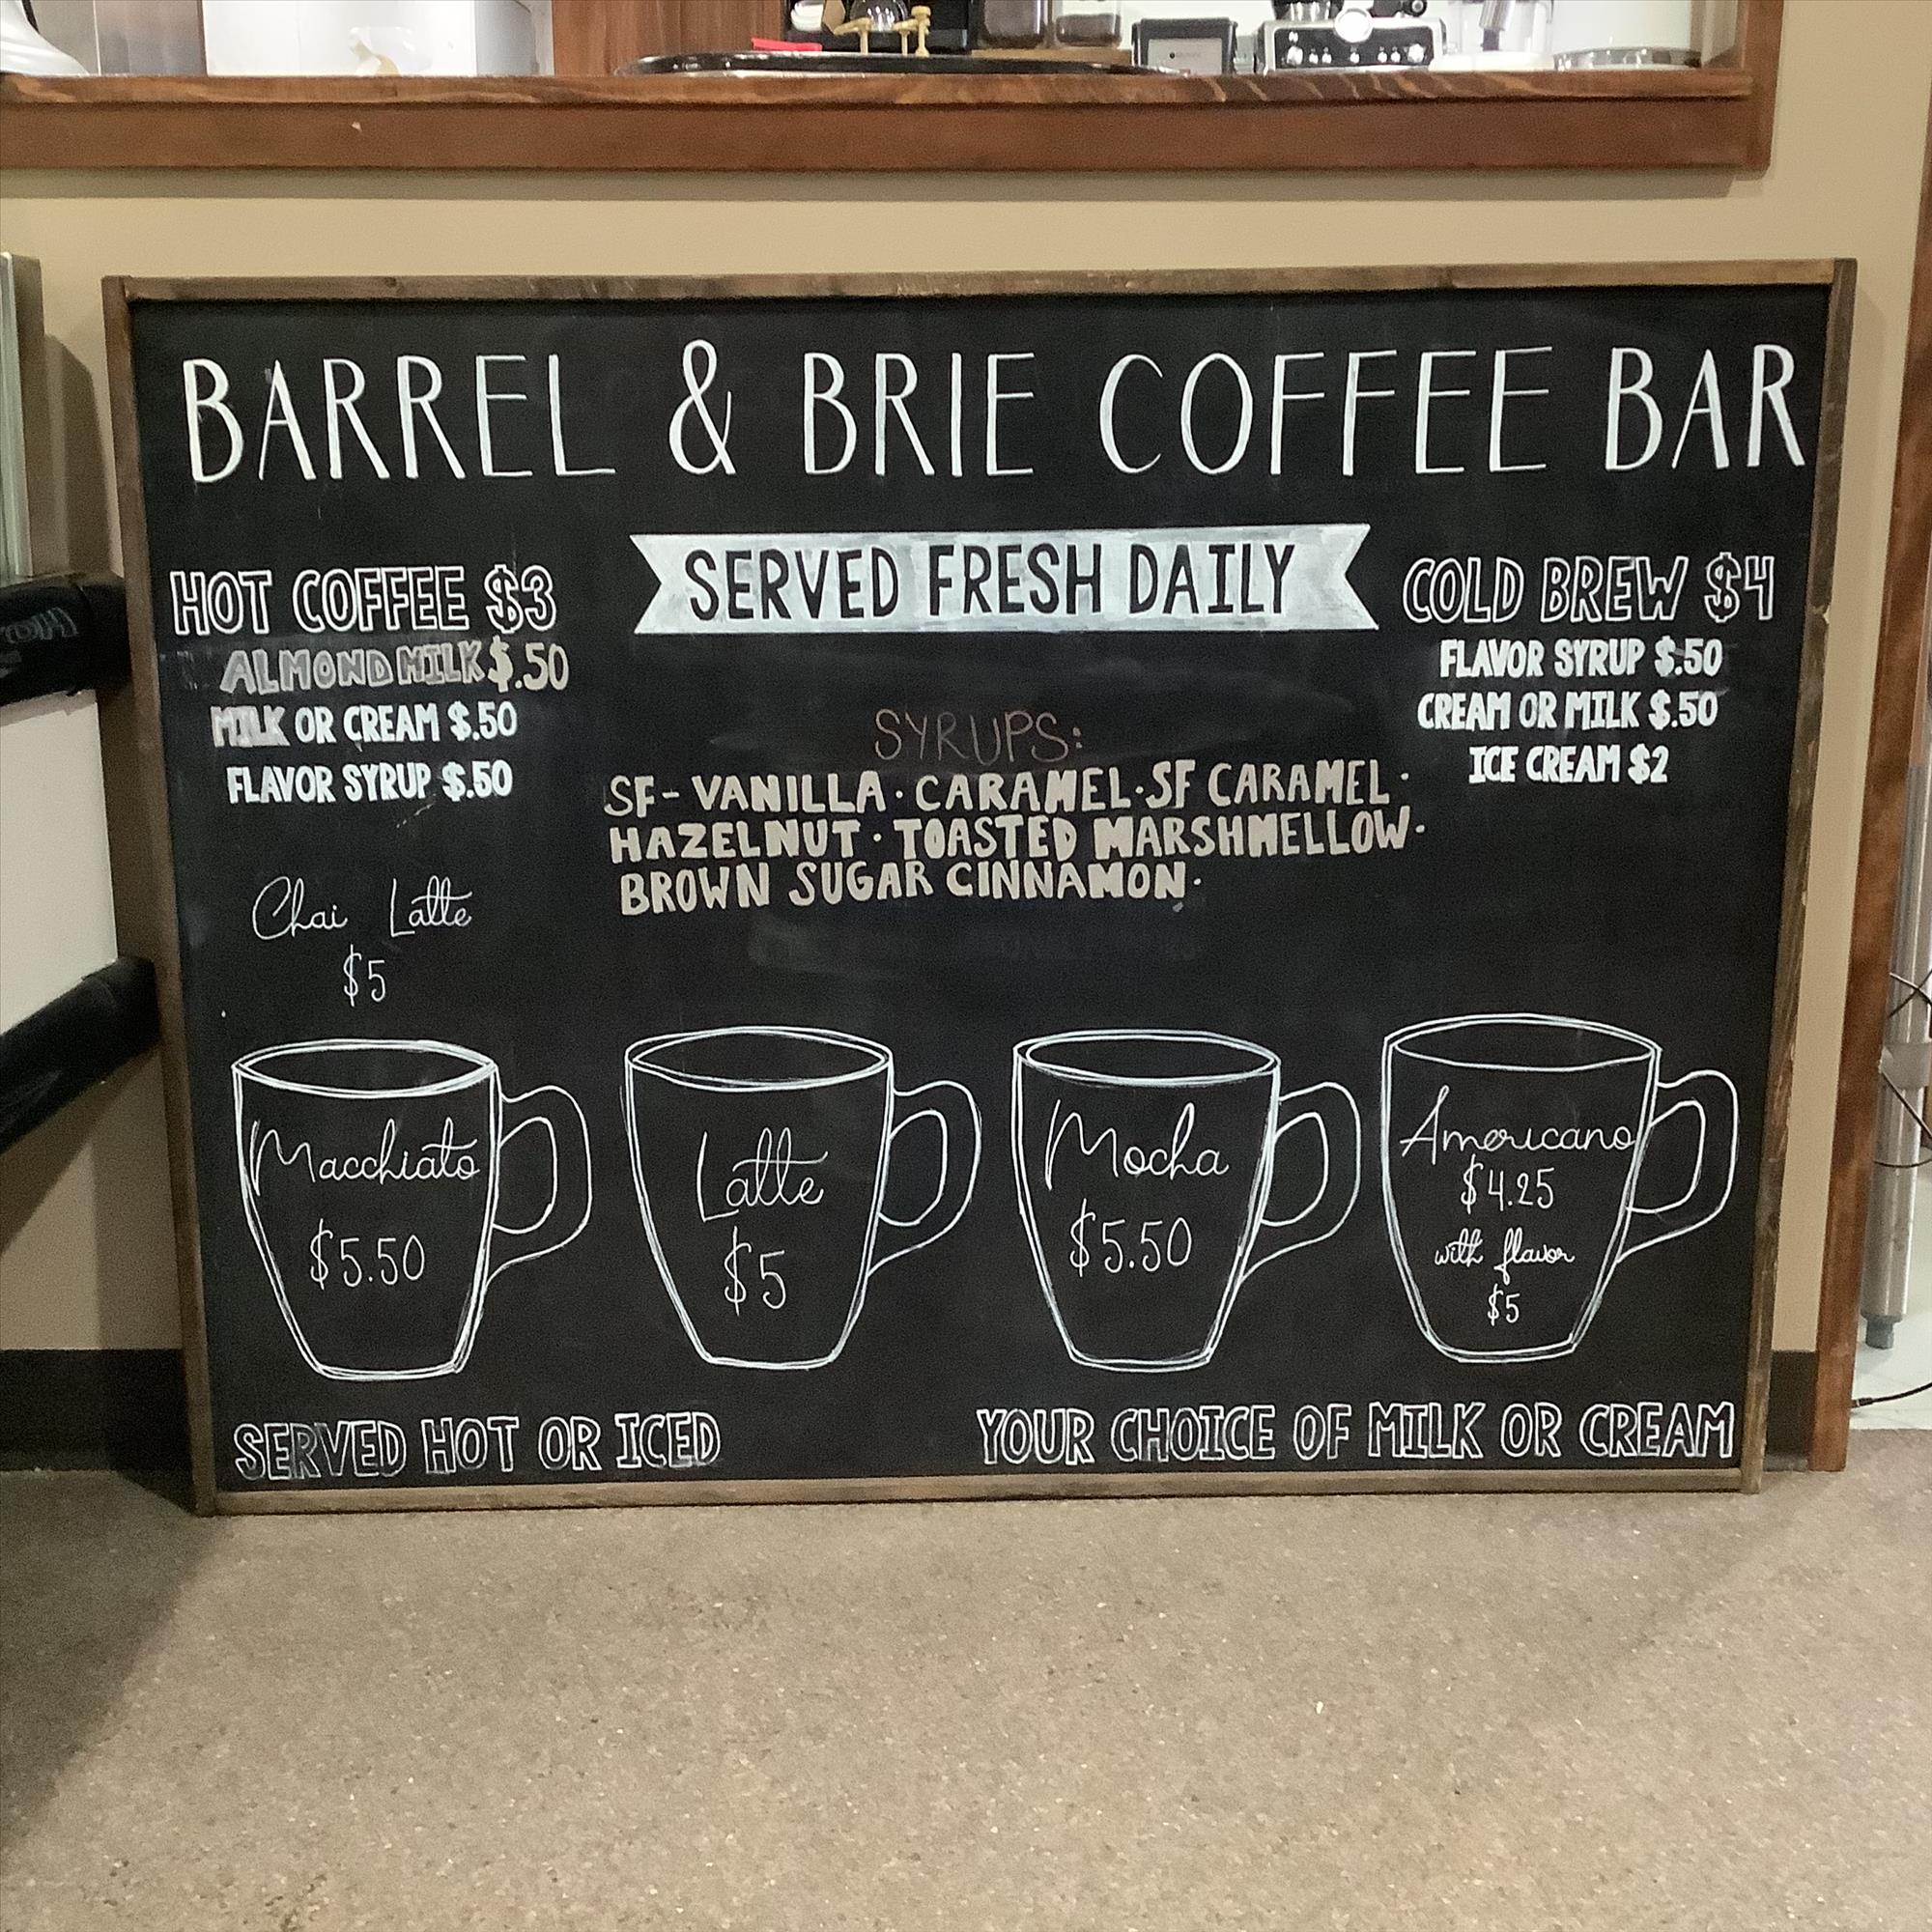 BARREL & BRIE COFFEE BAR
SERVED FRESH DAILY
HOT COFFEE $3
ALMOND MILK $.50
MILK OR CREAM $.50
FLAVOR SYRUP $.50
COLD BREW $4
FLAVOR SYRUP $.50
CREAM OR MILK $.50
ICE CREAM $2
SYRUPS:
SF-VANILLA · CARAMEL · SF CARAMEL ·
HAZELNUT · TOASTED MARSHMELLOW ·
BROWN SUGAR CINNAMON ·
Chai Latte
$5
Macchiato
$5.50
Latte
$5
Mocha
$5.50
Americano
$4.25
with flavor
$5
SERVED HOT OR ICED
YOUR CHOICE OF MILK OR CREAM